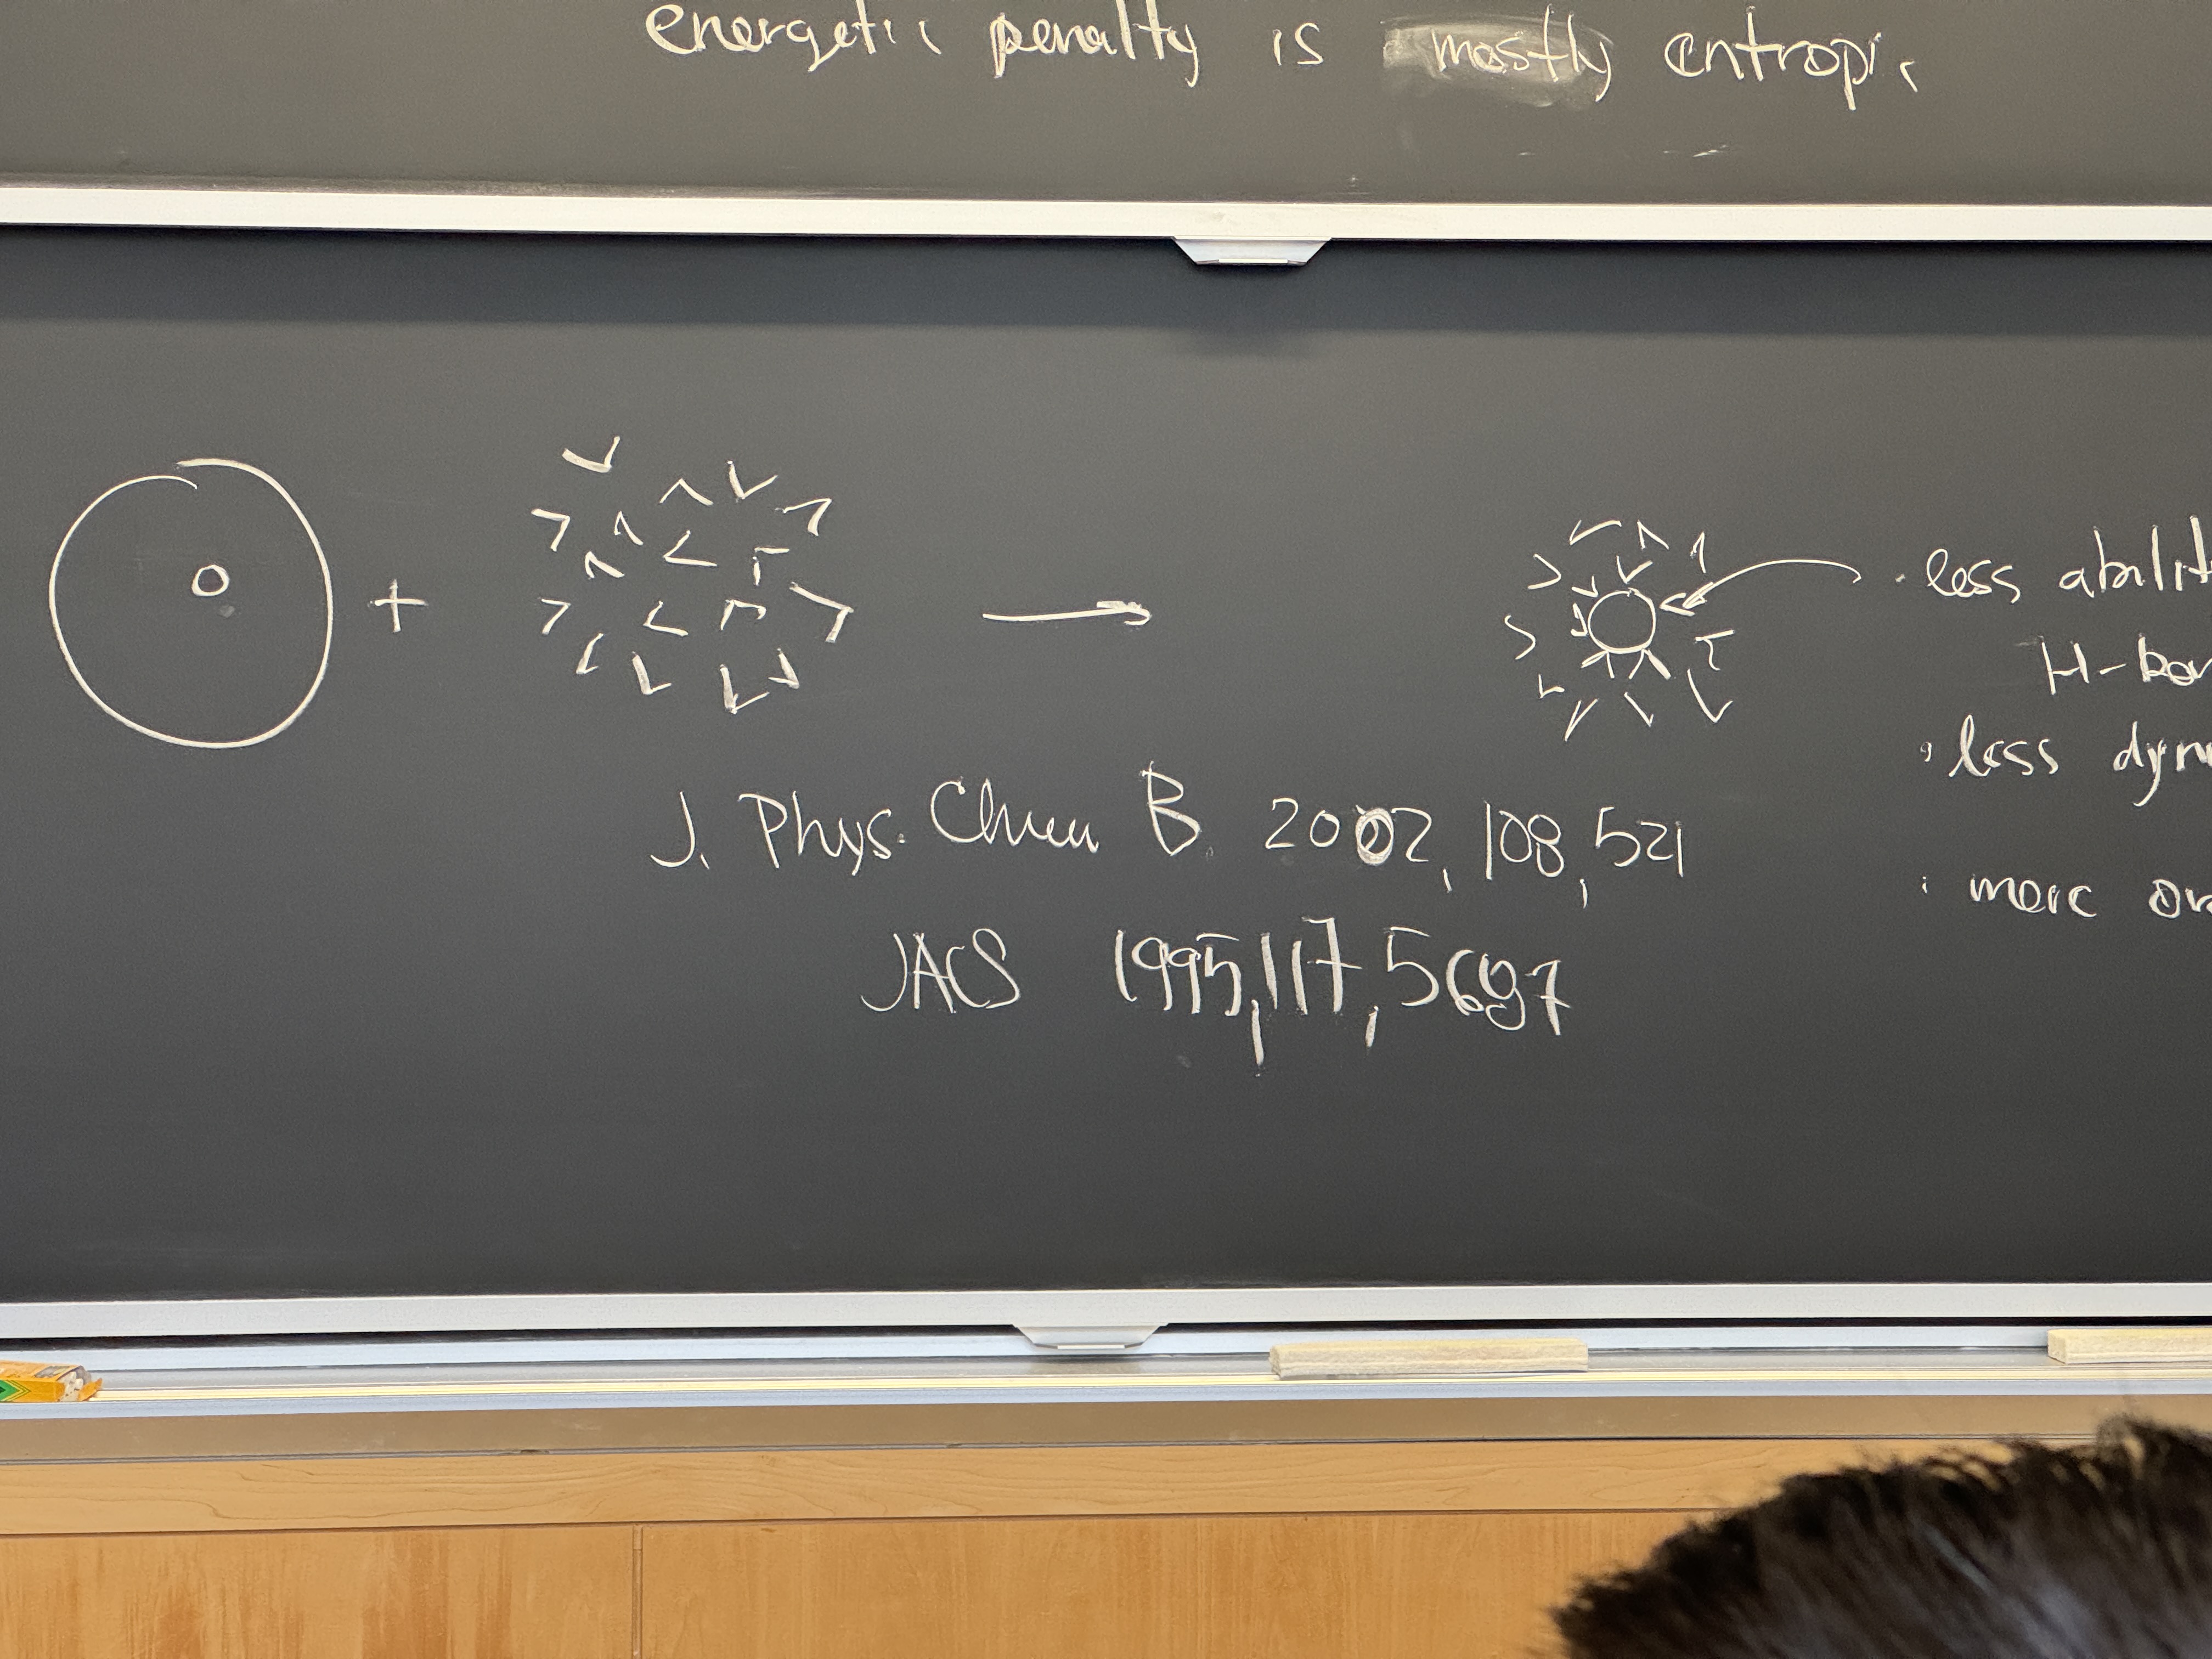 energetic penalty is mostly entropic
+
less abilit
H-bon
less dyn
J. Phys. Chem B. 2002, 108, 521
more or
JACS 1995, 117, 5697